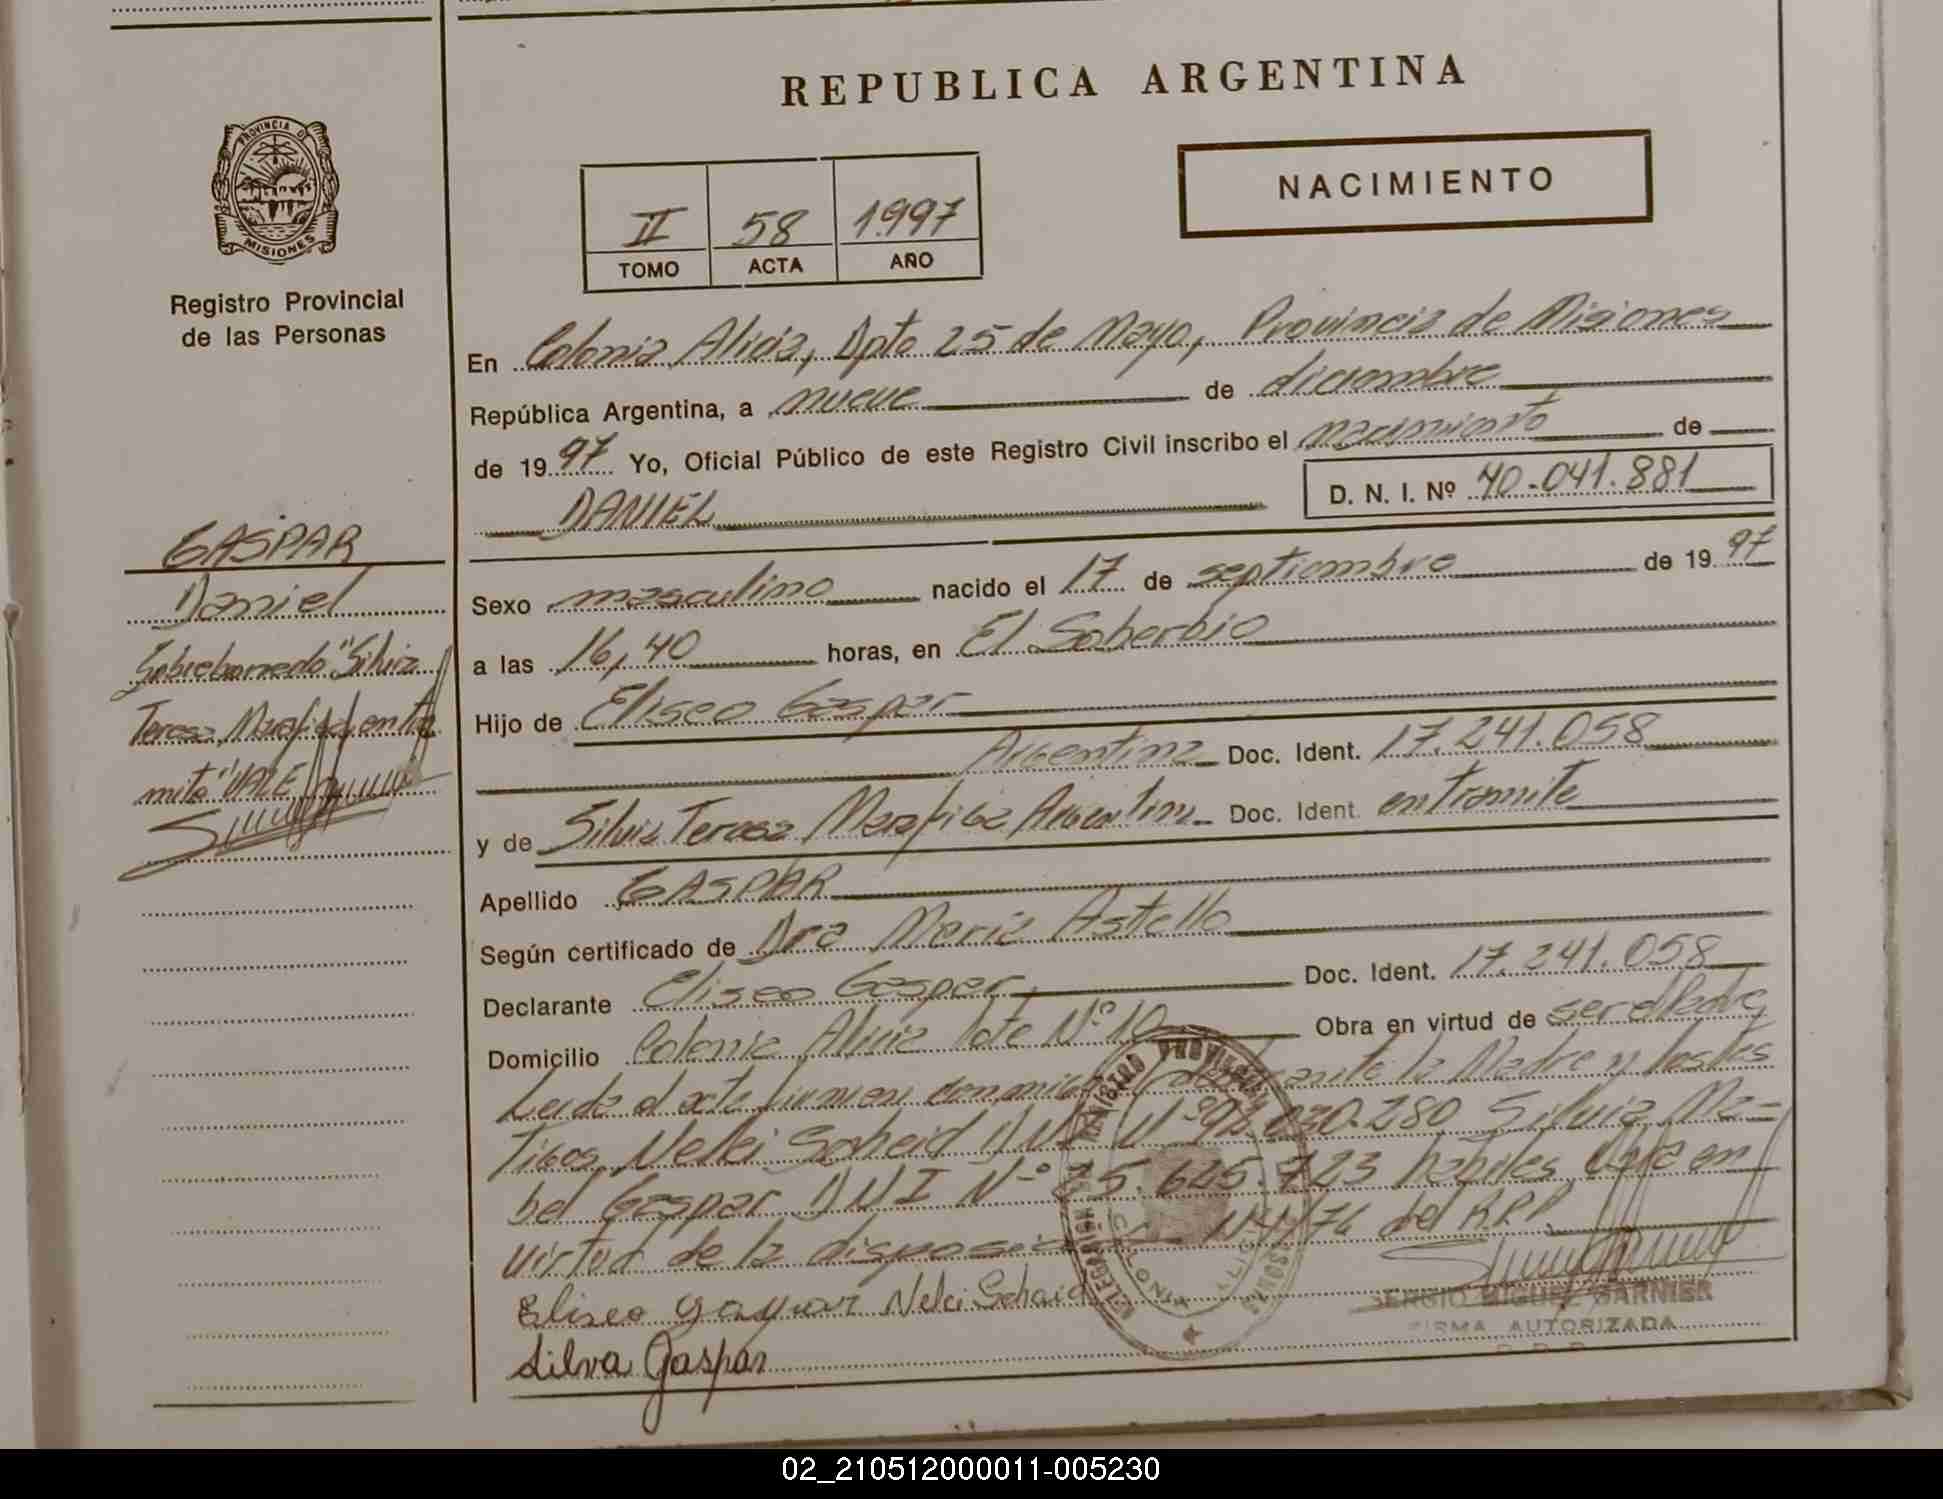 REPUBLICA ARGENTINA
NACIMIENTO
II 58 1.997
TOMO ACTA AÑO
PROVINCIA DE
MISIONES
Registro Provincial
de las Personas
GASPAR
Daniel
Sobreborrado "Silvia
Teresa en tra
mite" VALE
En Colonia Alicia, Dpto 25 de Mayo, Provincia de Misiones
República Argentina, a nueve de diciembre
de 1997 Yo, Oficial Público de este Registro Civil inscribo el nacimiento de
DANIEL D. N. I. Nº 40.041.881
Sexo masculino nacido el 17 de septiembre de 1997
a las 16,40 horas, en El Soberbio
Hijo de Eliseo Gaspar
Argentina Doc. Ident. 17.241.058
y de Silvia Teresa Argentina Doc. Ident. en tramite
Apellido GASPAR
Según certificado de Dra Maria Astello
Declarante Eliseo Gaspar Doc. Ident. 17.241.058
Domicilio Colonia Alicia lote Nº 10 Obra en virtud de ser el Padre
Leida el acta firman conmigo la Madre y los tes
tigos Nelci Scheid DNI Nº 92.030.280 Silvia Ma-
bel Gaspar DNI Nº 25.625.723 habiles en
virtud de la del R.P.P.
Eliseo gaspar Nelci Scheid
Silva Gaspar
SERGIO MIGUEL GARNIER
FIRMA AUTORIZADA
R.P.P.
02_210512000011-005230